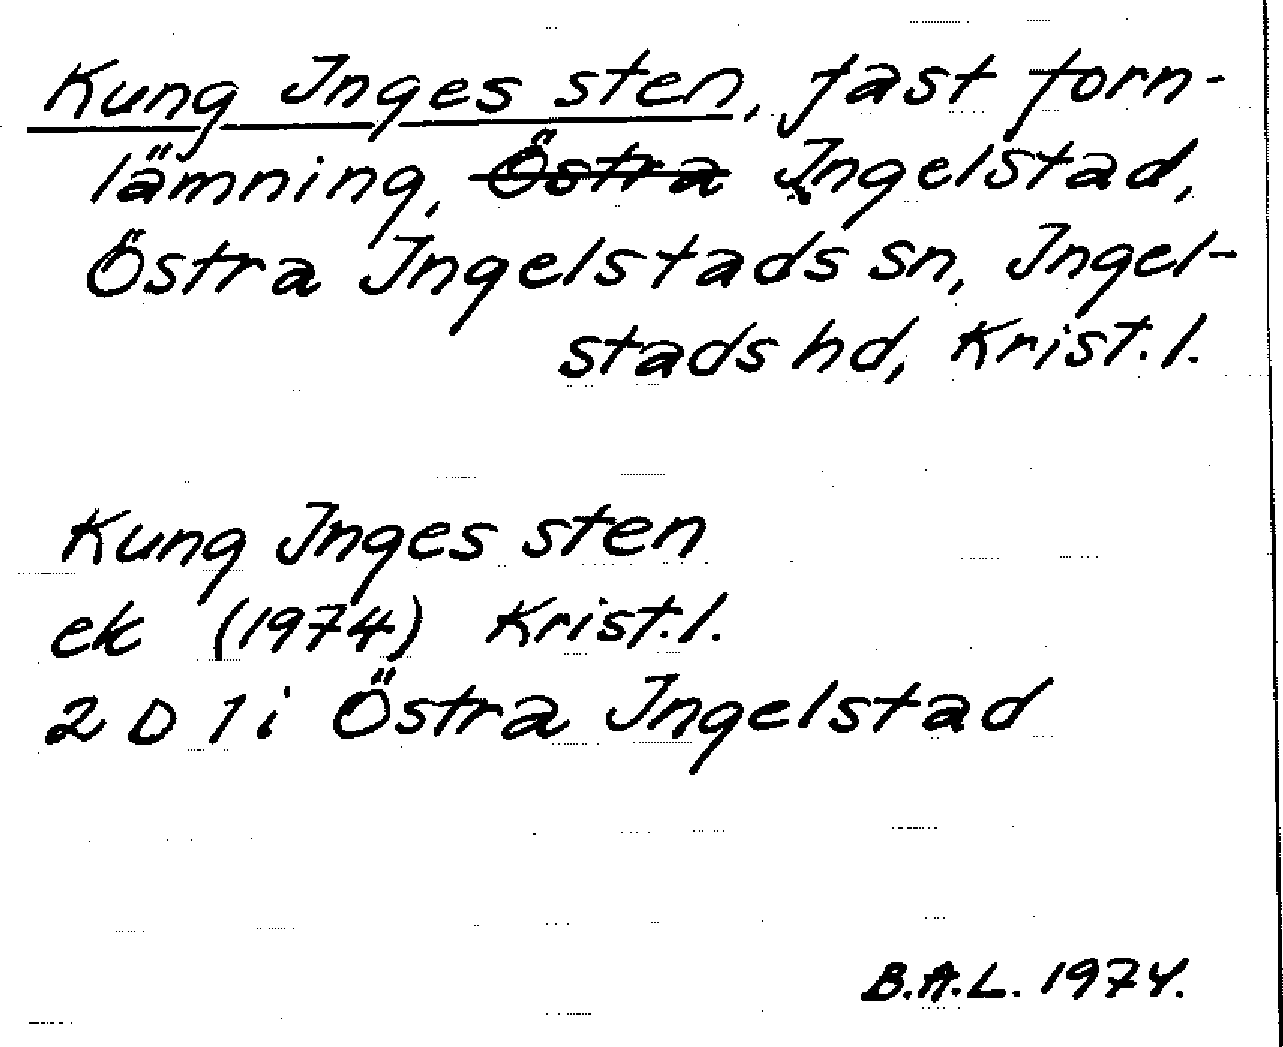 Kung Inges sten, fast forn-
lämning, Östra Ingelstad,
Östra Ingelstads sn, Ingel-
stads hd, Krist.l.
Kung Inges sten
ek (1974) Krist.l.
2 D 1 i Östra Ingelstad
B.A.L. 1974.